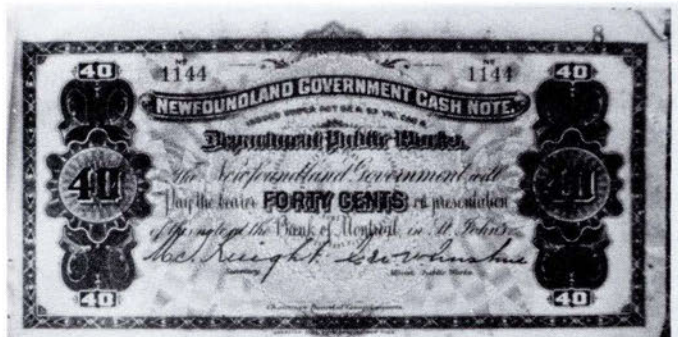 8
40 Nº 1144 Nº 1144 40
NEWFOUNDLAND GOVERNMENT CASH NOTE.
ISSUED UNDER ACT 52 & 53 VIC. CAP.
Department Public Works.
The Newfoundland Government will
40 Pay the bearer FORTY CENTS on presentation 40
of this note at the Bank of Montreal, in St. John's
Knight
Secretary. Public Works
40 40